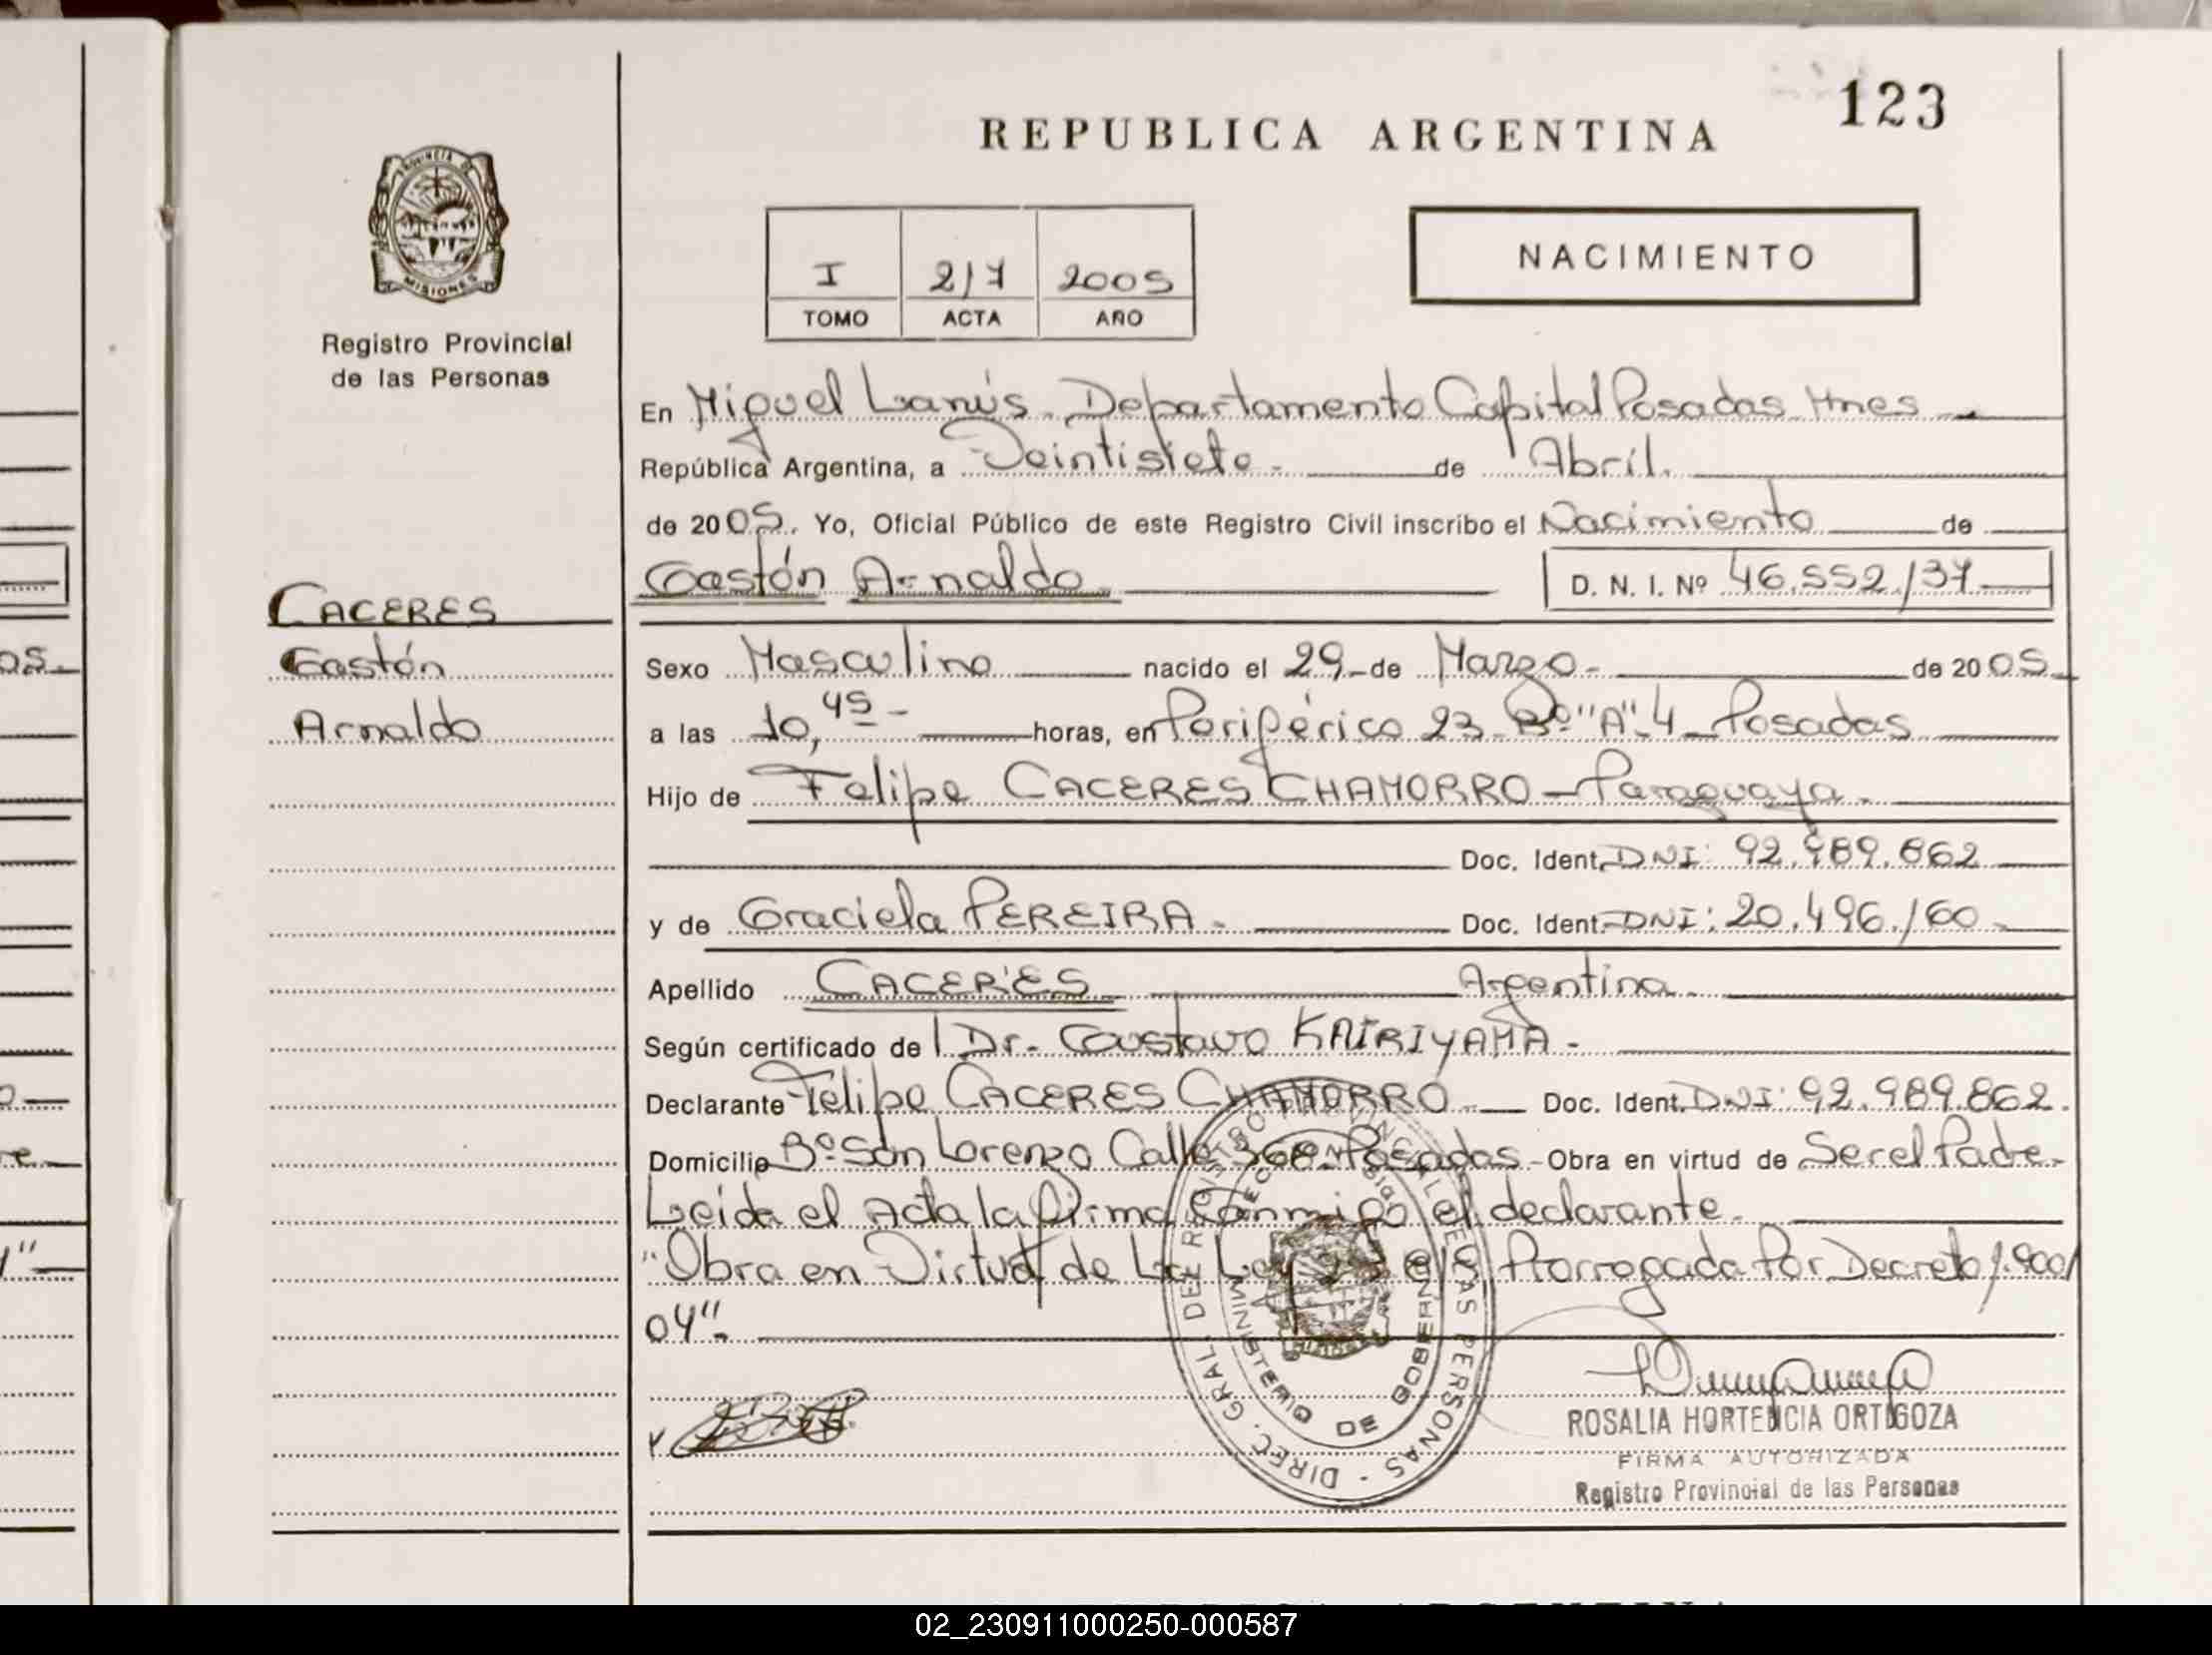 123
REPUBLICA ARGENTINA
PROVINCIA DE
MISIONES
NACIMIENTO
I 217 2005
TOMO ACTA AÑO
Registro Provincial
de las Personas
En Miguel Lanús. Departamento Capital Posadas Mnes
República Argentina, a Veintisiete - de Abril.
de 2005. Yo, Oficial Público de este Registro Civil inscribo el Nacimiento de
Gastón Arnaldo D. N. I. Nº 46.552.137
CACERES
Gastón
Arnaldo
Sexo Masculino nacido el 29 de Marzo - de 2005
a las 10,45 - horas, en Periférico 23 Bº "A" 4 - Posadas
Hijo de Felipe CACERES CHAMORRO - Paraguaya.
Doc. Ident. DNI: 92.989.862
y de Graciela PEREIRA. Doc. Ident. DNI: 20.496.160
Apellido CACERES Argentina.
Según certificado de l Dr. Gustavo KAIRIYAMA -
Declarante Felipe CACERES CHAMORRO Doc. Ident. DNI: 92.989.862.
Domicilio Bº San Lorenzo Calle 368 - Posadas - Obra en virtud de Ser el Padre -
Leida el Acta la firma Conmigo el declarante.
"Obra en Virtud de La Ley Prorrogada Por Decreto 1.900/
04".
DIREC. GRAL. DEL REGISTRO PROVINCIAL DE LAS PERSONAS
MINISTERIO DE GOBIERNO
ROSALIA HORTENCIA ORTIGOZA
FIRMA AUTORIZADA
Registro Provincial de las Personas
02_230911000250-000587